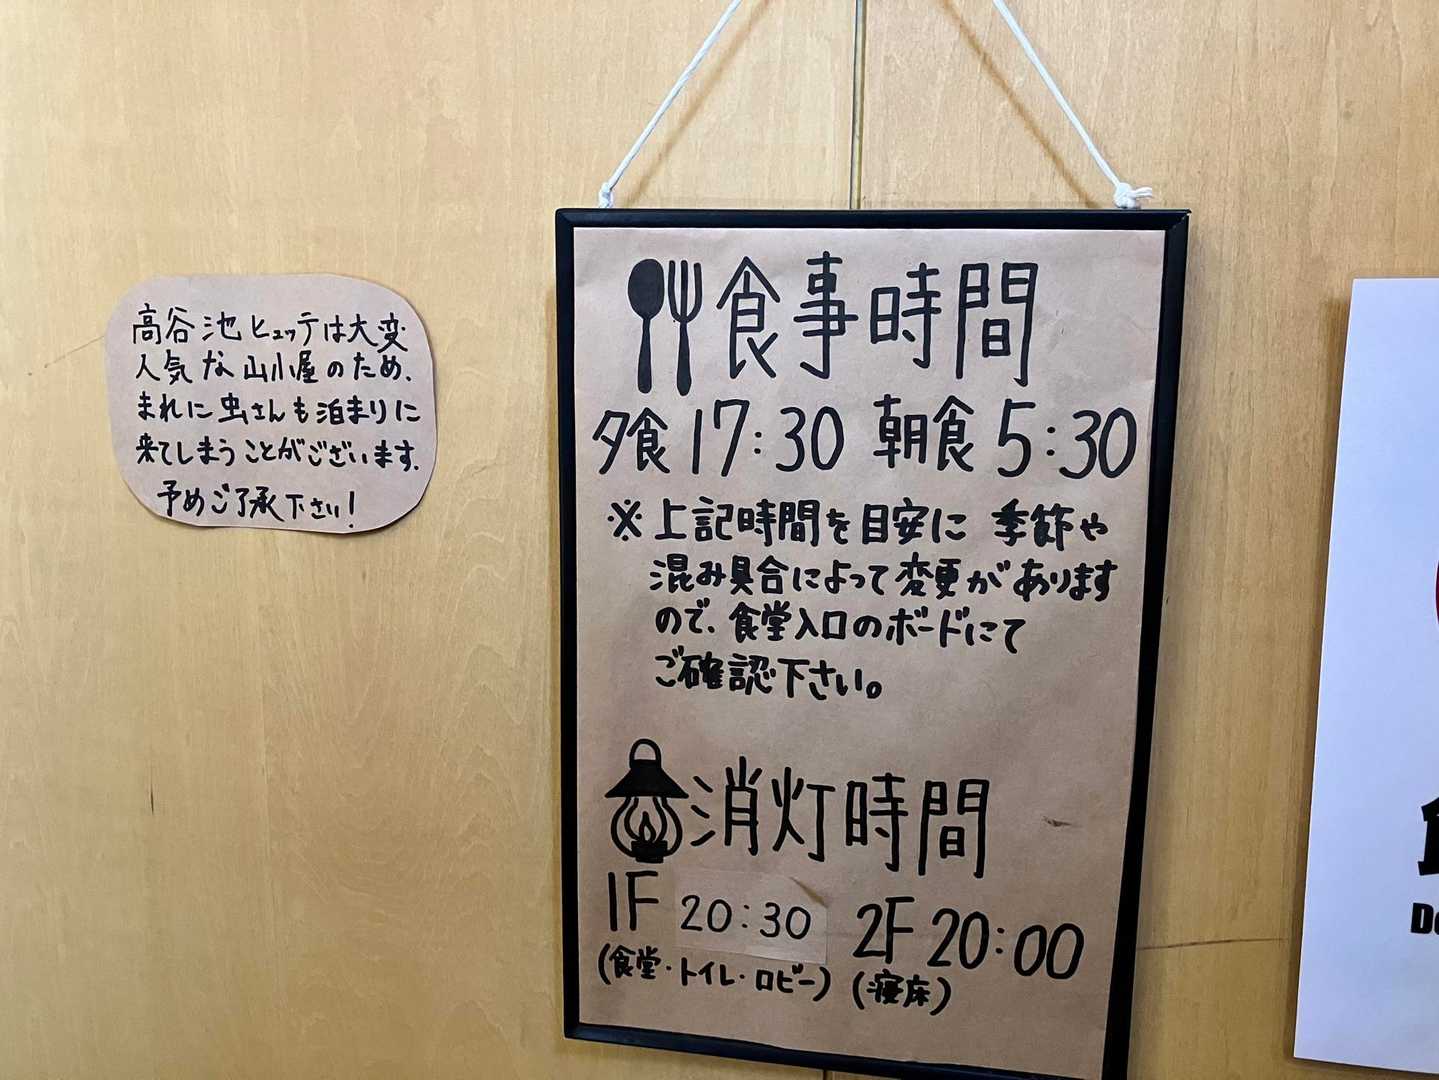 高谷池ヒュッテは大変
人気な山小屋のため、
まれに虫さんも泊まりに
来てしまうことがございます。
予めご了承下さい!
食事時間
夕食 17:30 朝食 5:30
※上記時間を目安に 季節や
混み具合によって変更があります
ので、食堂入口のボードにて
ご確認下さい。
消灯時間
1F 20:30 2F 20:00
(食堂・トイレ・ロビー) (寝床)